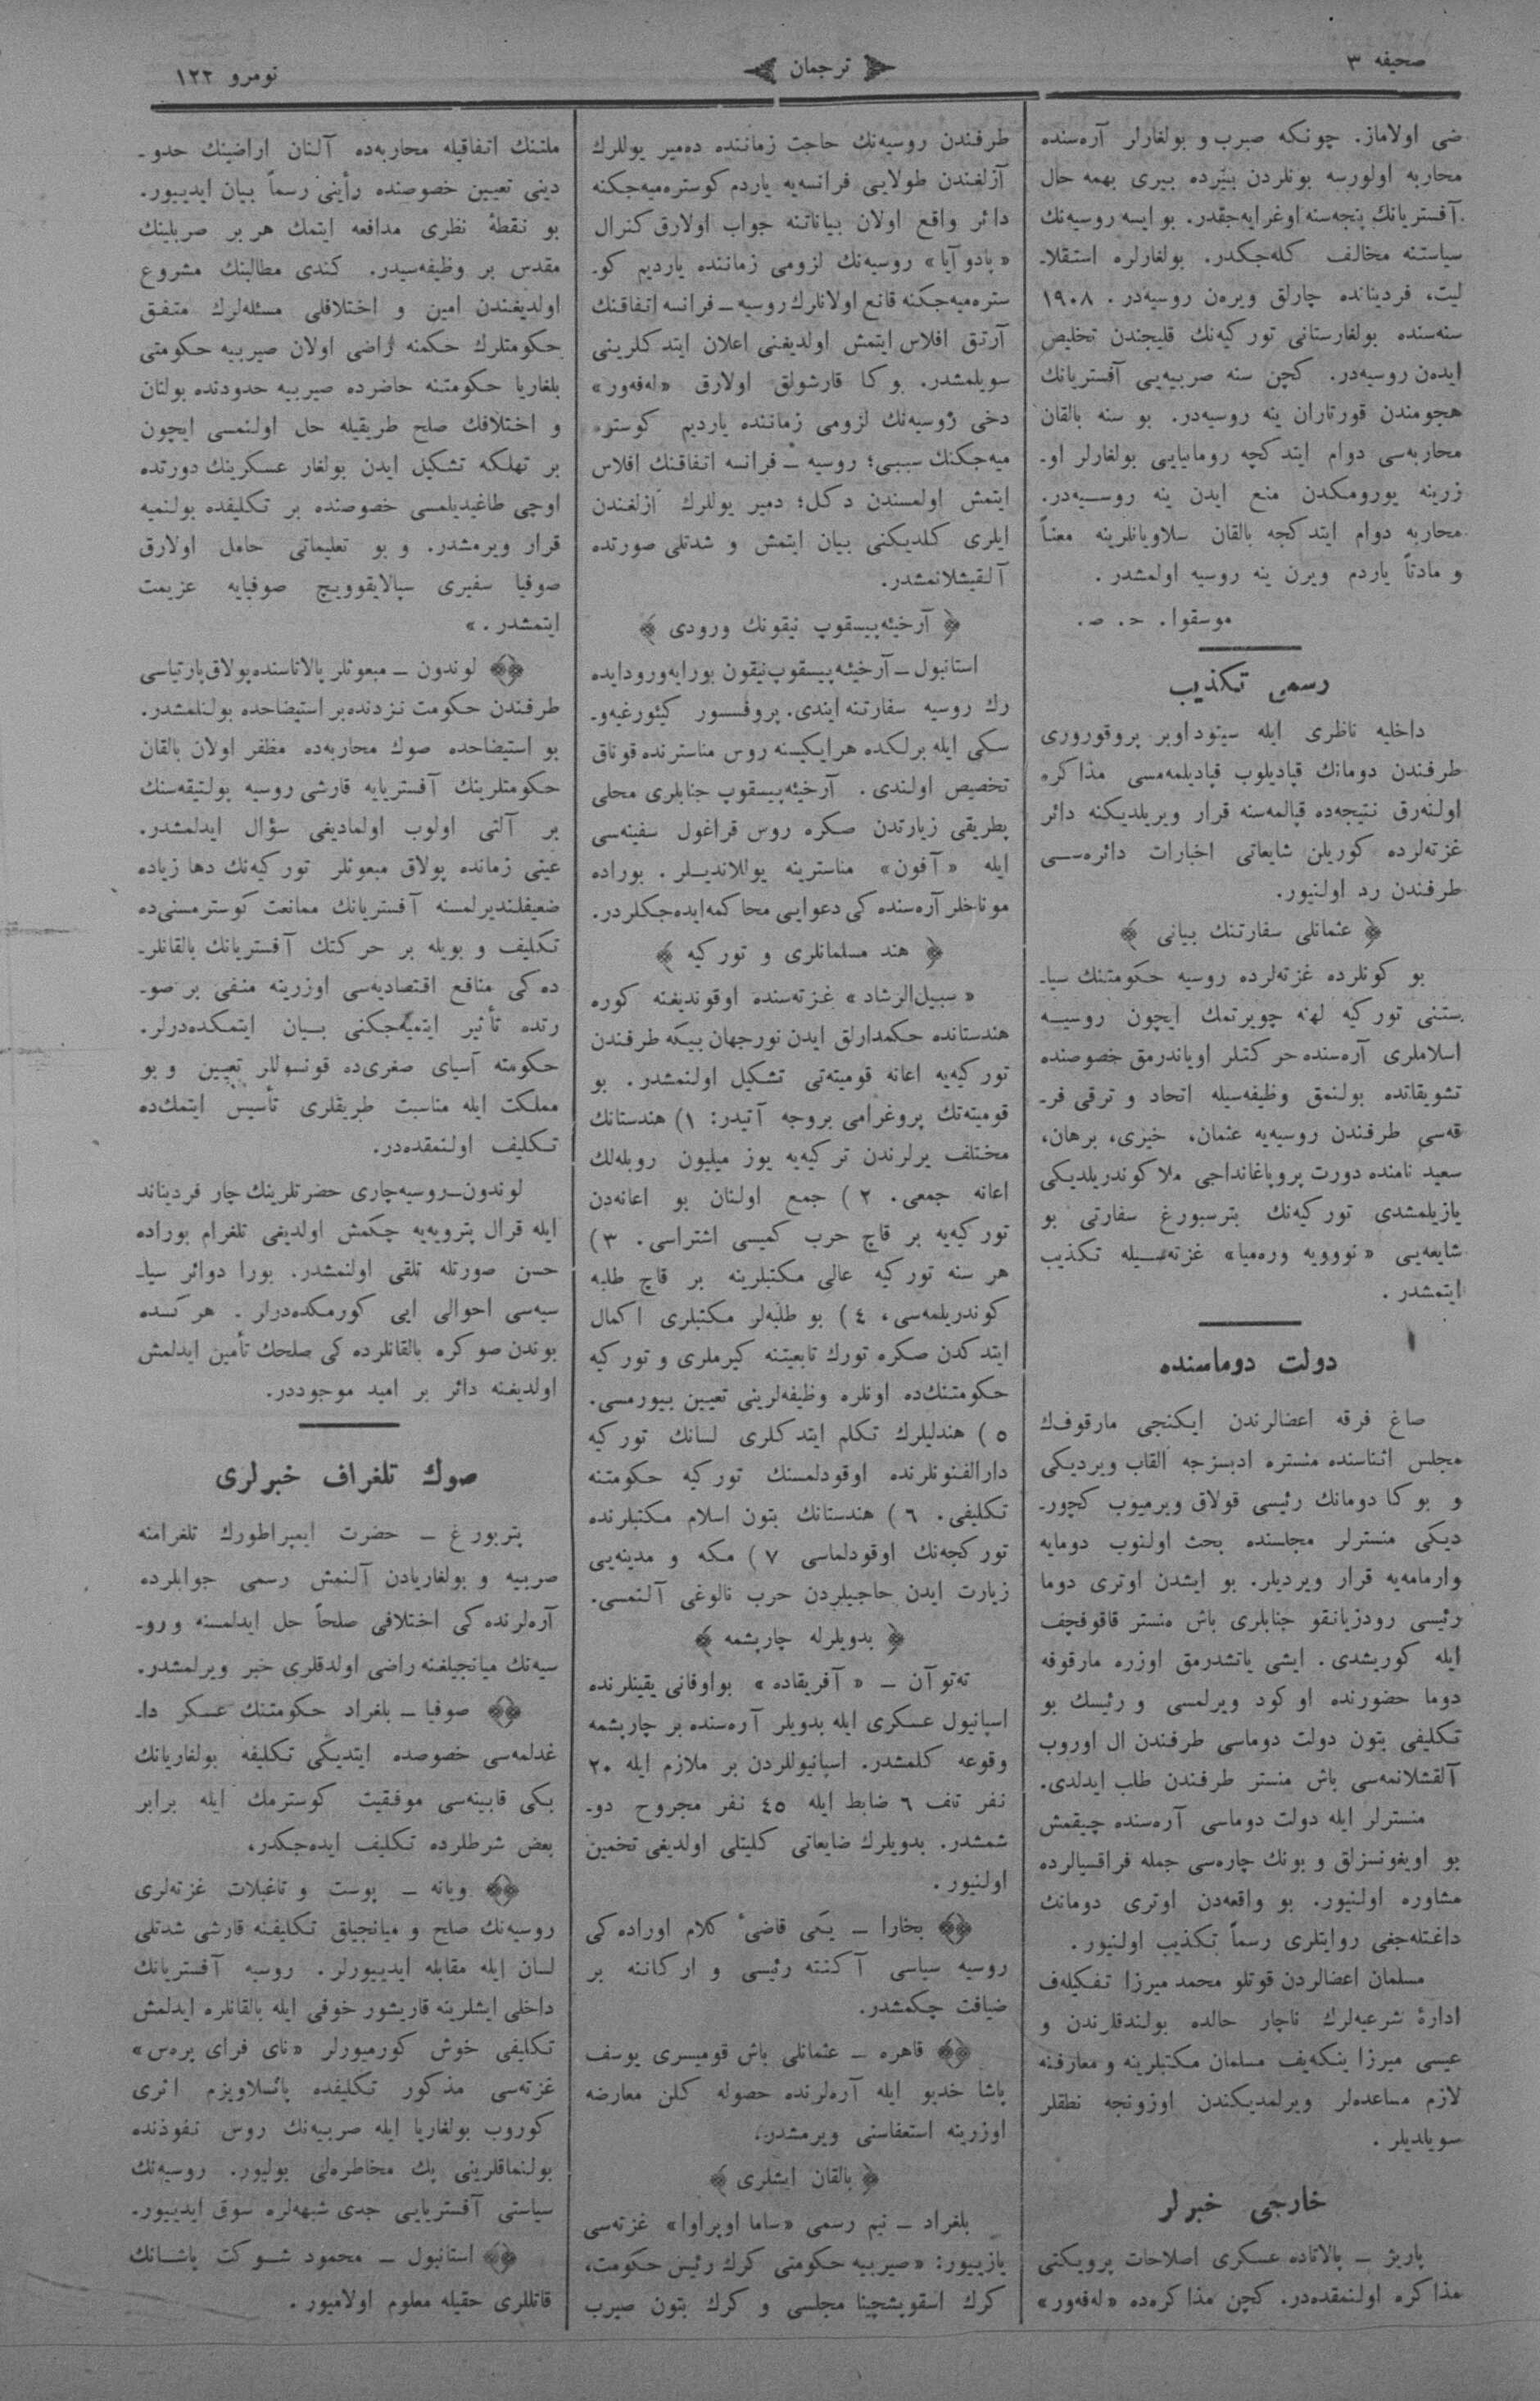 صحیفه ٣
ترجمان
نومرو ١٢٢
ضی اولاماز. چونكه صرب و بولغارلر آره‌سنده
محاربه اولورسه بونلردن بیرده بیری بهمه حال
آفستریانك پنجه‌سنه اوغرایه‌جقدر. بو ایسه روسیه‌نك
سیاستنه مخالف كله‌جكدر. بولغارلره استقلا‌ـ
لیت، فردینانده چارلق ویره‌ن روسیه‌در. ١٩٠٨
سنه‌سنده بولغارستانی توركیه‌نك قلیجندن تخلیص
ایده‌ن روسیه‌در. كچن سنه صربیه‌یی آفستریانك
هجومندن قورتاران ینه روسیه‌در. بو سنه بالقان
محاربه‌سی دوام ایتدكچه رومانیایی بولغارلر او‌ـ
زرینه یورومكدن منع ایدن ینه روسیه‌در.
محاربه دوام ایتدكجه بالقان سلاویانلرینه معناً
و مادتاً یاردم ویرن ینه روسیه اولمشدر.
موسقوا. ح. ص.
رسمی تكذیب
داخلیه ناظری ایله سینود اوبر پروقوروری
طرفندن دومانك قپادیلوب قپادیلمه‌مسی مذاكره
اولنه‌رق نتیجه‌ده قپالمه‌سنه قرار ویریلدیكنه دائر
غزته‌لرده كوریلن شایعاتی اخبارات دائره‌سی
طرفندن رد اولنیور.
﴿ عثمانلی سفارتنك بیانی ﴾
بو كونلرده غزته‌لرده روسیه حكومتنك سیا‌ـ
ستنی توركیه لهنه چویرتمك ایچون روسیه
اسلاملری آره‌سنده حركتلر اویاندرمق خصوصنده
تشویقاتده بولنمق وظیفه‌سیله اتحاد و ترقی فر‌ـ
قه‌سی طرفندن روسیه‌یه عثمان، خیری، برهان،
سعید نامنده دورت پروپاغانداجی ملا كوندریلدیكی
یازیلمشدی توركیه‌نك پترسبورغ سفارتی بو
شایعه‌یی «نوویه وره‌میا» غزته‌سیله تكذیب
ایتمشدر.
دولت دوماسنده
صاغ فرقه اعضالرندن ایكنجی مارقوفك
مجلس اثناسنده منستره ادبسزجه القاب ویردیكی
و بوكا دومانك رئیسی قولاق ویرمیوب كچور‌ـ
دیكی منسترلر مجلسنده بحث اولنوب دومایه
وارمامه‌یه قرار ویردیلر. بو ایشدن اوتری دوما
رئیسی رودزیانقو جنابلری باش منستر قاقوفچف
ایله كوریشدی. ایشی یاتشدرمق اوزره مارقوفه
دوما حضورنده اوكود ویرلمسی و رئیسك بو
تكلیفی بتون دولت دوماسی طرفندن ال اوروب
آلقشلانمه‌سی باش منستر طرفندن طلب ایدلدی.
منسترلر ایله دولت دوماسی آره‌سنده چیقمش
بو اویغونسزلق و بونك چاره‌سی جمله فراقسیالرده
مشاوره اولنیور. بو واقعه‌دن اوتری دومانك
داغتله‌جغی روایتلری رسماً تكذیب اولنیور.
مسلمان اعضالردن قوتلو محمد میرزا تفكیله‌ف
ادارهٔ شرعیه‌لرك ناچار حالده بولندقلرندن و
عیسی میرزا ینكه‌یف مسلمان مكتبلرینه و معارفنه
لازم مساعده‌لر ویرلمدیكندن اوزونجه نطقلر
سویلدیلر.
خارجی خبرلر
پاریژ ـ پالاتاده عسكری اصلاحات پرویكتی
مذاكره اولنمقده‌در. كچن مذاكره‌ده «له‌فه‌ور»
طرفندن روسیه‌نك حاجت زماننده ده‌میر یوللرك
آزلغندن طولایی فرانسه‌یه یاردم كوستره‌میه‌جكنه
دائر واقع اولان بیاناتنه جواب اولارق كنرال
«پادو آیا» روسیه‌نك لزومی زماننده یاردیم كو‌ـ
ستره‌میه‌جكنه قانع اولانلرك روسیه ـ فرانسه اتفاقنك
آرتق افلاس ایتمش اولدیغنی اعلان ایتدكلرینی
سویلمشدر. بوكا قارشولق اولارق «له‌فه‌ور»
دخی روسیه‌نك لزومی زماننده یاردیم كوستره
میه‌جكنك سببی؛ روسیه ـ فرانسه اتفاقنك افلاس
ایتمش اولمسندن دكل؛ دمیر یوللرك ازلغندن
ایلری كلدیكنی بیان ایتمش و شدتلی صورتده
آلقیشلانمشدر.
﴿ آرخیئه‌پیسقوپ نیقونك ورودی ﴾
استانبول ـ آرخیئه‌پیسقوپ نیقون بورایه ورود ایده
رك روسیه سفارتنه ایندی. پروفسور كیئورغیه‌و‌ـ
سكی ایله برلكده هر ایكیسنه روس مناسترنده قوناق
تخصیص اولندی. آرخیئه‌پیسقوپ جنابلری محلی
پطریقی زیارتدن صكره روس قراغول سفینه‌سی
ایله «آفون» مناسترینه یوللاندیلر. بوراده
موناخلر آره‌سنده كی دعوایی محاكمه ایده‌جكلردر.
﴿ هند مسلمانلری و توركیه ﴾
«سبیل‌الرشاد» غزته‌سنده اوقوندیغنه كوره
هندستانده حكمدارلق ایدن نورجهان بیكه طرفندن
توركیه‌یه اعانه قومیته‌تی تشكیل اولنمشدر. بو
قومیته‌تك پروغرامی بروجه آتیدر: ١) هندستانك
مختلف یرلرندن تركیه‌یه یوز میلیون روبله‌لك
اعانه جمعی. ٢) جمع اولنان بو اعانه‌دن
توركیه‌یه بر قاچ حرب كمیسی اشتراسی. ٣)
هر سنه توركیه عالی مكتبلرینه بر قاچ طلبه
كوندریلمه‌سی، ٤) بو طلبه‌لر مكتبلری اكمال
ایتدكدن صكره تورك تابعیتنه كیرملری و توركیه
حكومتنك‌ده اونلره وظیفه‌لرینی تعیین بیورمسی.
٥) هندلیلرك تكلم ایتدكلری لسانك توركیه
دارالفنونلرنده اوقودلمسنك توركیه حكومتنه
تكلیفی. ٦) هندستانك بتون اسلام مكتبلرنده
توركجه‌نك اوقودلماسی ٧) مكه و مدینه‌یی
زیارت ایدن حاجیلردن حرب نالوغی آلنمسی.
﴿ بدویلرله چارپشمه ﴾
ته‌توآن ـ «آفریقاده» بواوفانی یقینلرنده
اسپانیول عسكری ایله بدویلر آره‌سنده بر چارپشمه
وقوعه كلمشدر. اسپانیوللردن بر ملازم ایله ٢٠
نفر تلف ٦ ضابط ایله ٤٥ نفر مجروح دو‌ـ
شمشدر. بدویلرك ضایعاتی كلیتلی اولدیغی تخمین
اولنیور.
بخارا ـ یكی قاضیٔ كلام اوراده كی
روسیه سیاسی آكنته رئیسی و اركاننه بر
ضیافت چكمشدر.
قاهره ـ عثمانلی باش قومیسری یوسف
پاشا خدیو ایله آره‌لرنده حصوله كلن معارضه
اوزرینه استعفاسنی ویرمشدر.
﴿ بالقان ایشلری ﴾
بلغراد ـ نیم رسمی «ساما اوپراوا» غزته‌سی
یازییور: «صیربیه حكومتی كرك رئیس حكومت،
كرك اسقوپشچینا مجلسی و كرك بتون صیرب
ملتنك اتفاقیله محاربه‌ده آلنان اراضینك حدو‌ـ
دینی تعیین خصوصنده رأینی رسماً بیان ایدییور.
بو نقطهٔ نظری مدافعه ایتمك هر بر صربلینك
مقدس بر وظیفه‌سیدر. كندی مطالبنك مشروع
اولدیغندن امین و اختلافلی مسئله‌لرك متفق
حكومتلرك حكمنه راضی اولان صیربیه حكومتی
بلغاریا حكومتنه حاضرده صیربیه حدودنده بولنان
و اختلافك صلح طریقیله حل اولنمسی ایچون
بر تهلكه تشكیل ایدن بولغار عسكرینك دورتده
اوچی طاغیدیلمسی خصوصنده بر تكلیفده بولنمیه
قرار ویرمشدر. و بو تعلیماتی حامل اولارق
صوفیا سفیری سپالایقوویچ صوفیایه عزیمت
ایتمشدر.»
لوندون ـ مبعوثلر پالاتاسنده پولاق پارتیاسی
طرفندن حكومت نزدنده بر استیضاحده بولنلمشدر.
بو استیضاحده صوك محاربه‌ده مظفر اولان بالقان
حكومتلرینك آفستریایه قارشی روسیه پولتیقه‌سنك
بر آلتی اولوب اولمادیغی سؤال ایدلمشدر.
عینی زمانده پولاق مبعوثلر توركیه‌نك دها زیاده
ضعیفلندیرلمسنه آفستریانك ممانعت كوسترمسنی‌ده
تكلیف و بویله بر حركتك آفستریانك بالقانلر‌ـ
ده كی منافع اقتصادیه‌سی اوزرینه منفی بر صو‌ـ
رتده تأثیر ایتمیه‌جكنی بیان ایتمكده‌درلر.
حكومته آسیای صغری‌ده قونسوللر تعیین و بو
مملكت ایله مناسبت طریقلری تأسیس ایتمك‌ده
تكلیف اولنمقده‌در.
لوندون ـ روسیه چاری حضرتلرینك چار فردیناند
ایله قرال پترویه‌یه چكمش اولدیغی تلغرام بوراده
حسن صورتله تلقی اولنمشدر. بورا دوائر سیا‌ـ
سیه‌سی احوالی ایی كورمكده‌درلر. هركسده
بوندن صوكره بالقانلرده كی صلحك تأمین ایدلمش
اولدیغنه دائر بر امید موجوددر.
صوك تلغراف خبرلری
پتربورغ ـ حضرت ایمپراطورك تلغرامنه
صربیه و بولغاریادن آلنمش رسمی جوابلرده
آره‌لرنده كی اختلافی صلحاً حل ایدلمسنه و رو‌ـ
سیه‌نك میانجیلغنه راضی اولدقلری خبر ویرلمشدر.
صوفیا ـ بلغراد حكومتنك عسكر دا‌ـ
غدلمه‌سی خصوصده ایتدیكی تكلیفه بولغاریانك
یكی قابینه‌سی موفقیت كوسترمك ایله برابر
بعض شرطلرده تكلیف ایده‌جكدر.
ویانه ـ پوست و تاغبلات غزته‌لری
روسیه‌نك صلح و میانجیلق تكلیفنه قارشی شدتلی
لسان ایله مقابله ایدییورلر. روسیه آفستریانك
داخلی ایشلرینه قاریشور خوفی ایله بالقانلره ایدلمش
تكلیفی خوش كورمیورلر «نای فرای پره‌س»
غزته‌سی مذكور تكلیفده پانسلاویزم اثری
كوروب بولغاریا ایله صربیه‌نك روس نفوذنده
بولنماقلرینی پك مخاطره‌لی بولیور. روسیه‌نك
سیاستی آفستریایی جدی شبهه‌لره سوق ایدییور.
استانبول ـ محمود شوكت پاشانك
قاتللری حقیله معلوم اولامیور.